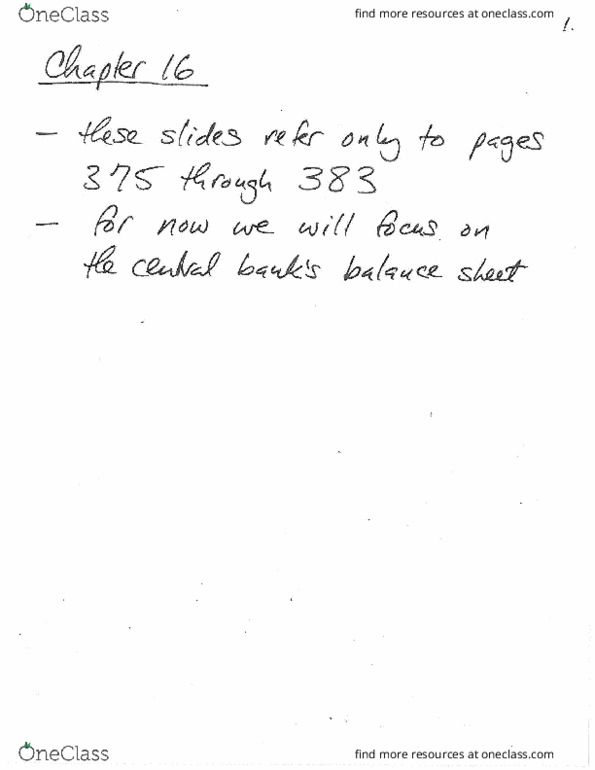 OneClass
find more resources at oneclass.com
1.
Chapter 16
– these slides refer only to pages
375 through 383
– for now we will focus on
the central bank's balance sheet
OneClass
find more resources at oneclass.com